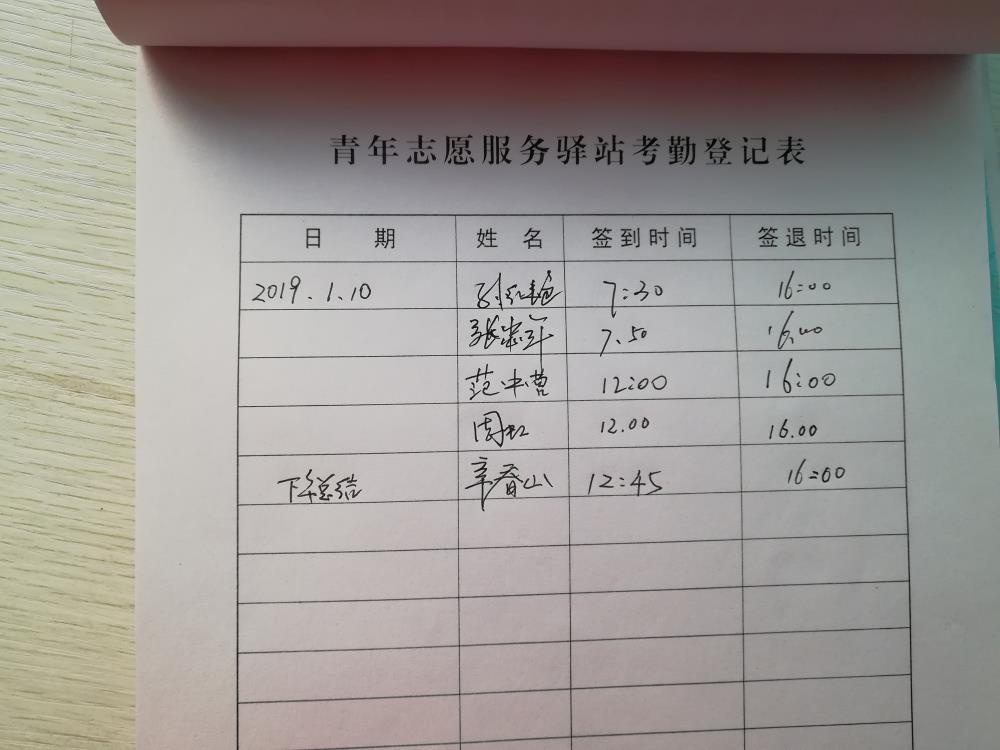 青年志愿服务驿站考勤登记表
日 期 姓 名 签到时间 签退时间
2019.1.10 7:30 16:00
张 7.50 16.00
范中曹 12:00 16:00
周红 12.00 16.00
下午总结 辛春山 12:45 16:00